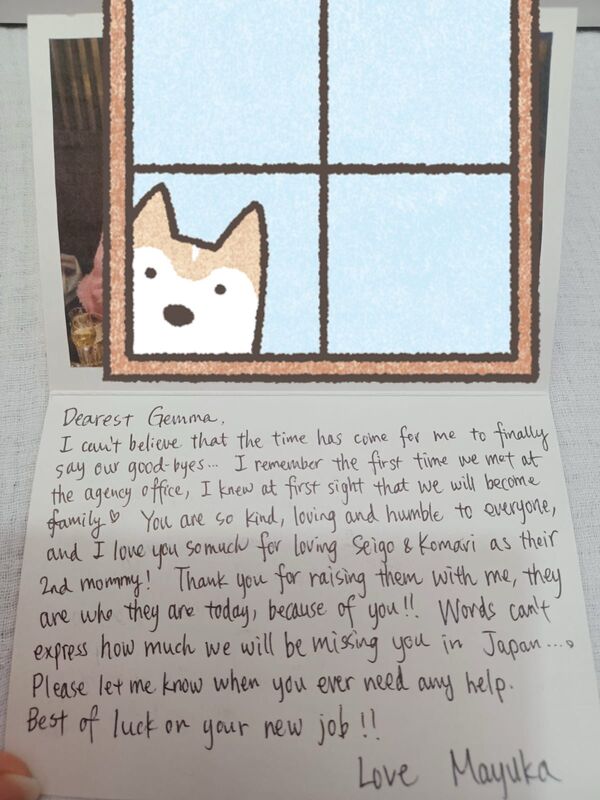 Dearest Gemma,
I can't believe that the time has come for me to finally
say our good-byes... I remember the first time we met at
the agency office, I knew at first sight that we will become
family♡ You are so kind, loving and humble to everyone,
and I love you so much for loving Seigo & Komari as their
2nd mommy! Thank you for raising them with me, they
are who they are today, because of you!! Words can't
express how much we will be missing you in Japan...。
Please let me know when you ever need any help.
Best of luck on your new job!!
Love Mayuka